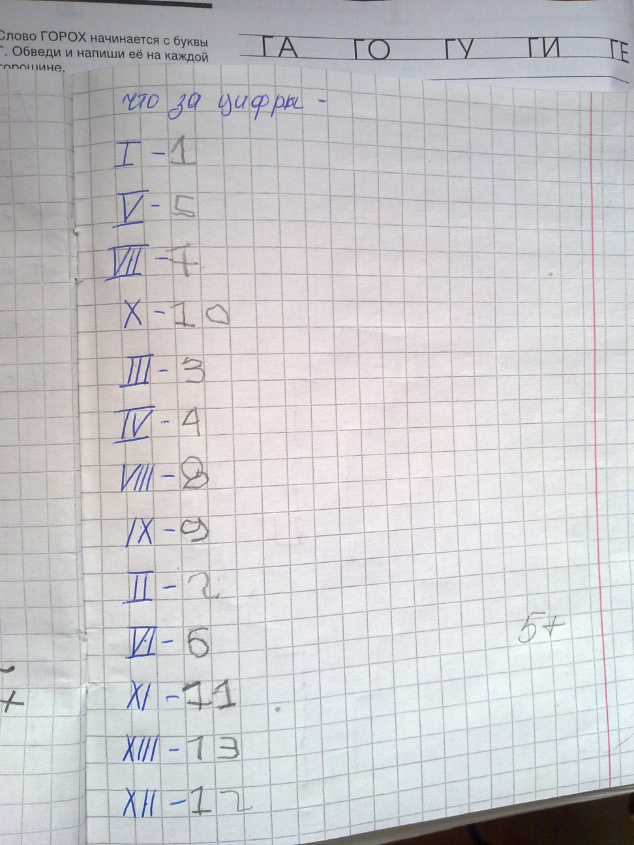 Слово ГОРОХ начинается с буквы
Г. Обведи и напиши её на каждой
горошине.
ГА ГО ГУ ГИ ГЕ
что за цифры -
I - 1
V - 5
VII - 7
X - 10
III - 3
IV - 4
VIII - 8
IX - 9
II - 2
VI - 6
5+
XI - 11
XIII - 13
XII - 12
+